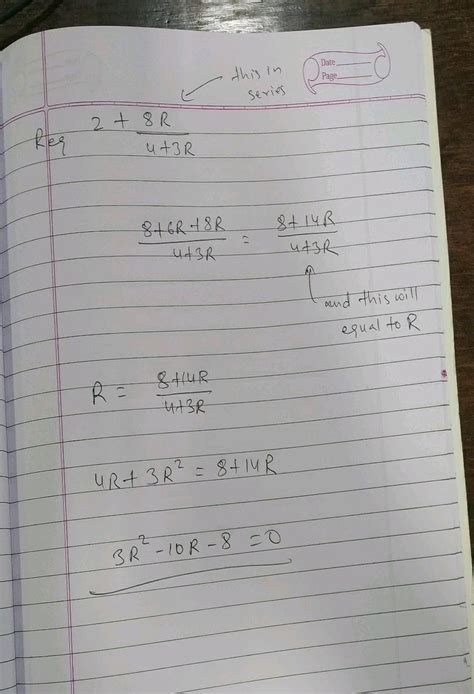 Date
Page
this in
series
Req 2 + 8R/4+3R
8+6R+8R/4+3R = 8+14R/4+3R
and this will
equal to R
R = 8+14R/4+3R
4R+3R² = 8+14R
3R²-10R-8=0